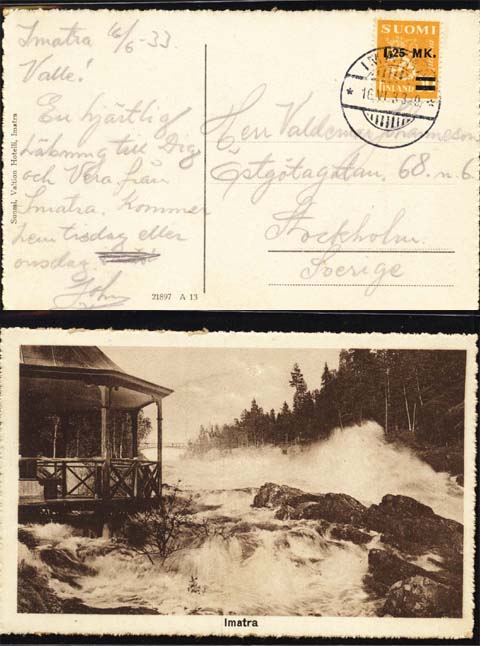 Imatra 16/6 - 33.
Valle!
En hjärtlig
hälsning till Dig
och Vera från
Imatra. Kommer
hem tisdag eller
onsdag
John
Suomi, Valtion Hotelli, Imatra
21897 A 13
SUOMI
1,25 MK.
FINLAND
16.VI.33
Herr Valdemar Johanneson
Östgötagatan, 68. n. b.
Stockholm.
Sverige
Imatra